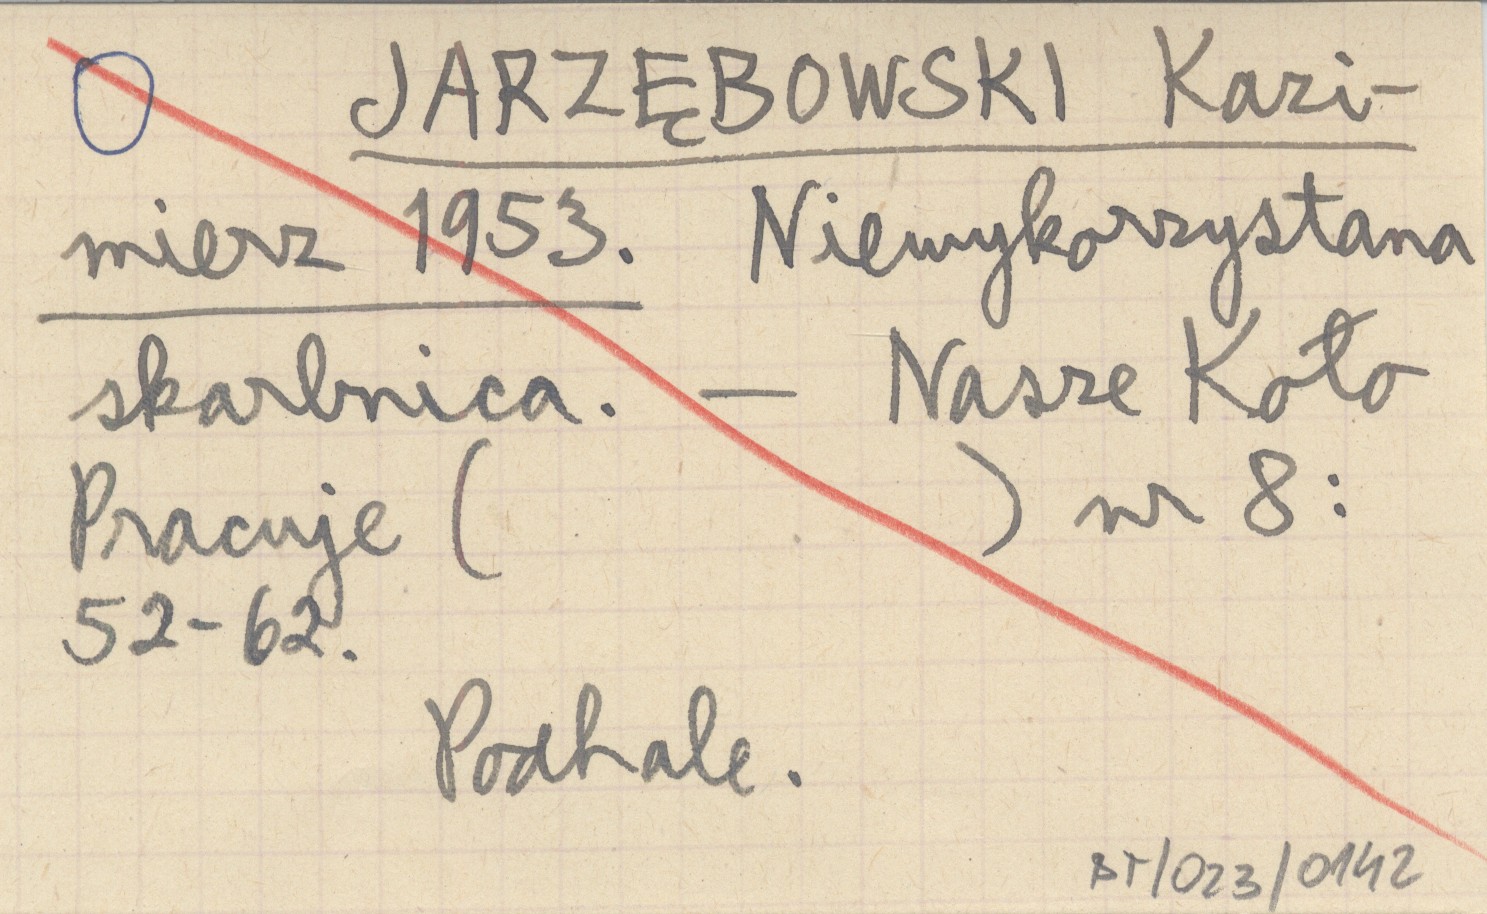 JARZĘBOWSKI Kazi-
mierz 1953. Niewykorzystana
skarbnica. — Nasze Koło
Pracuje (           ) nr 8:
52-62.
Podhale.
BT/023/0142